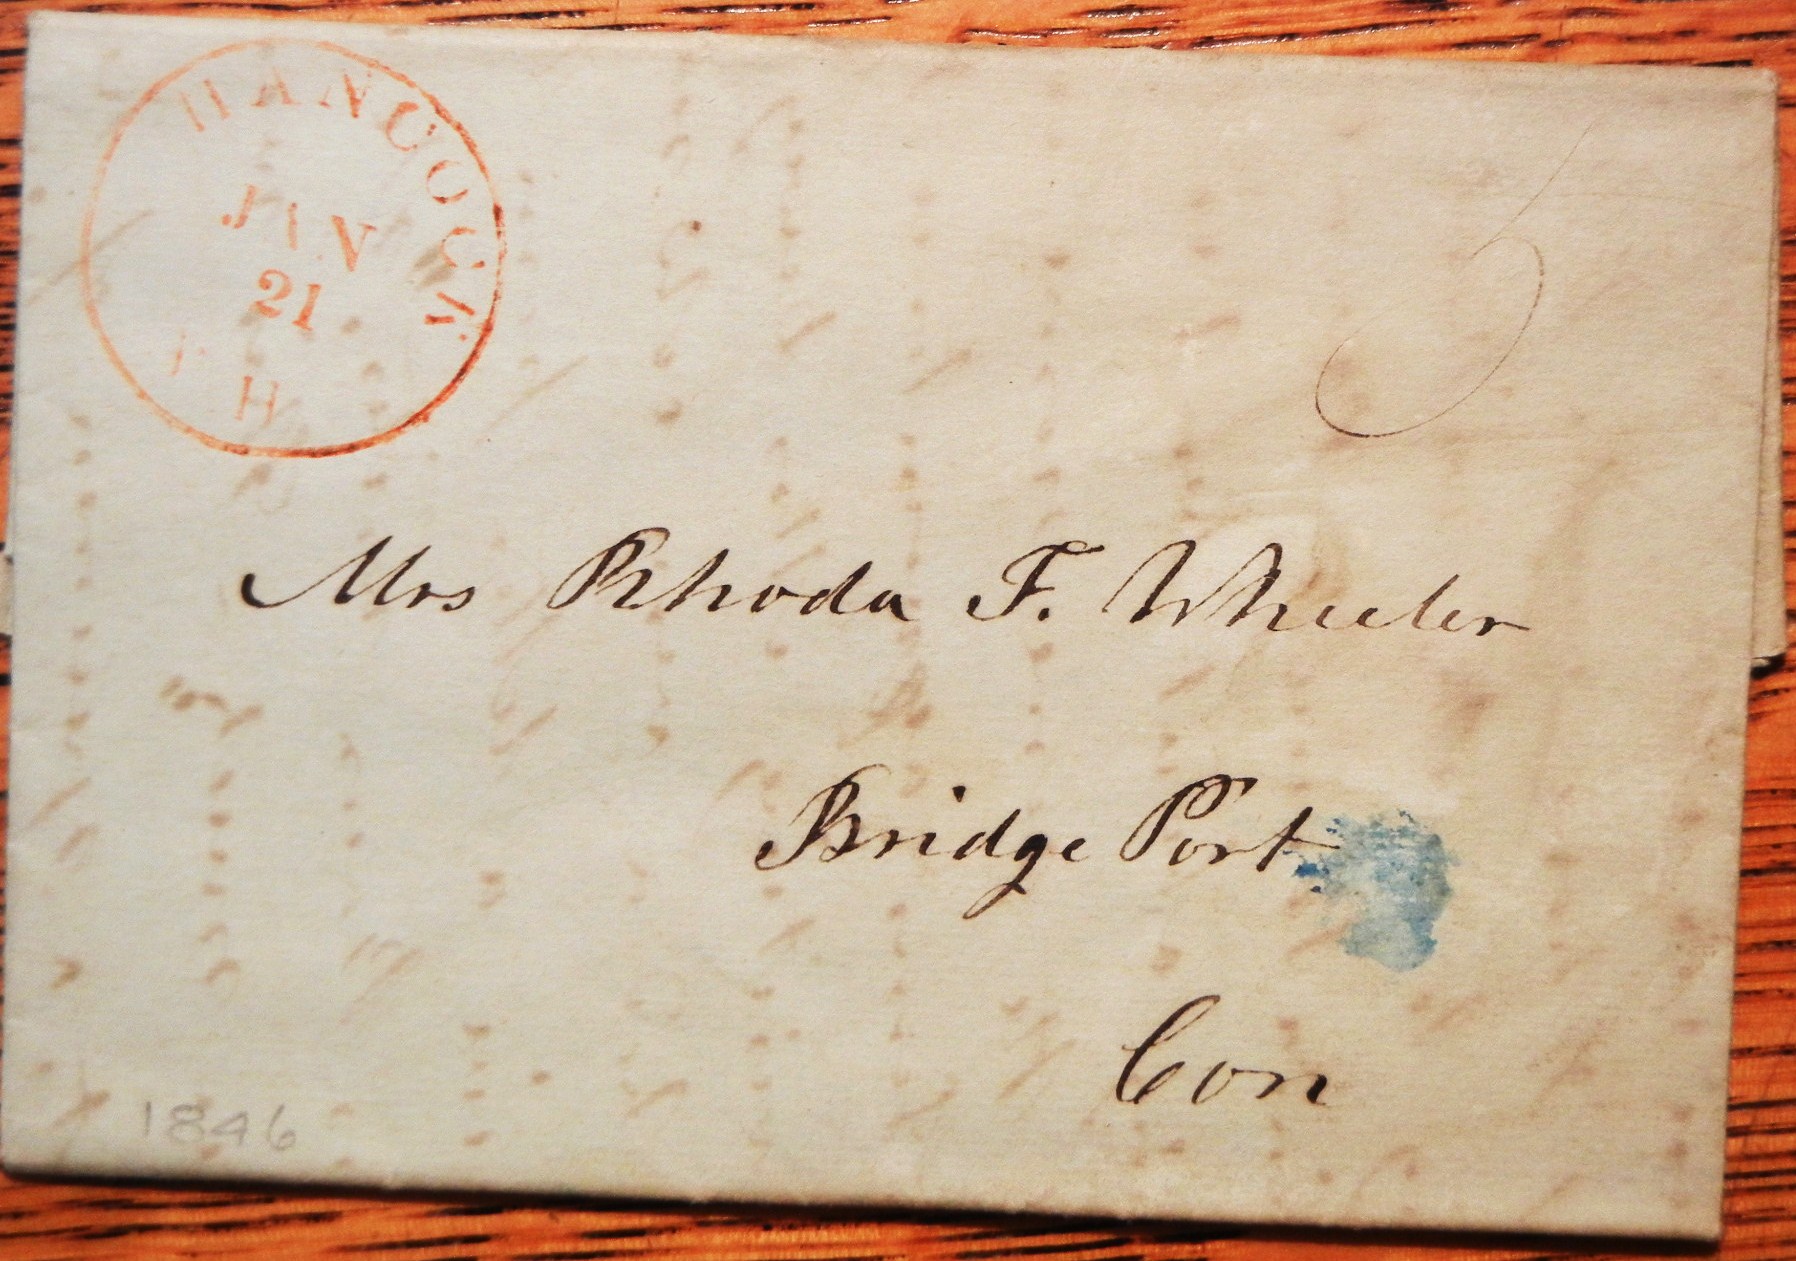 HANCOCK
JAN
21
H
5
Mrs Rhoda F. Wheeler
Bridge Port
Con
1846